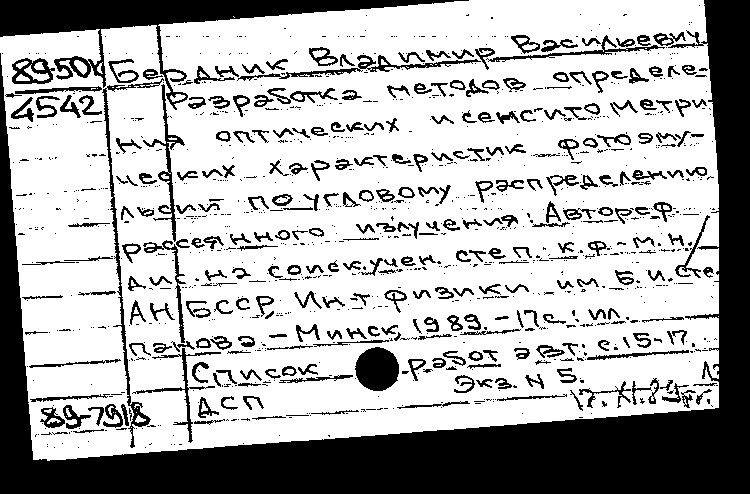 89-50к Бердник Владимир Васильевич
4542 Разработка методов определе-
ния оптических и сенситометри-
ческих характеристик фотоэму-
льсий по угловому распределению
рассеянного излучения: Автореф.
дис. на соиск. учен. степ. к.ф.-м.н./
АН БССР, Ин-т физики им. Б.И. Сте-
панова. - Минск, 1989. - 17с.: ил.
Список работ авт.: с.15-17.
Экз. N 5.
89-7918 ДСП 17.XI.89